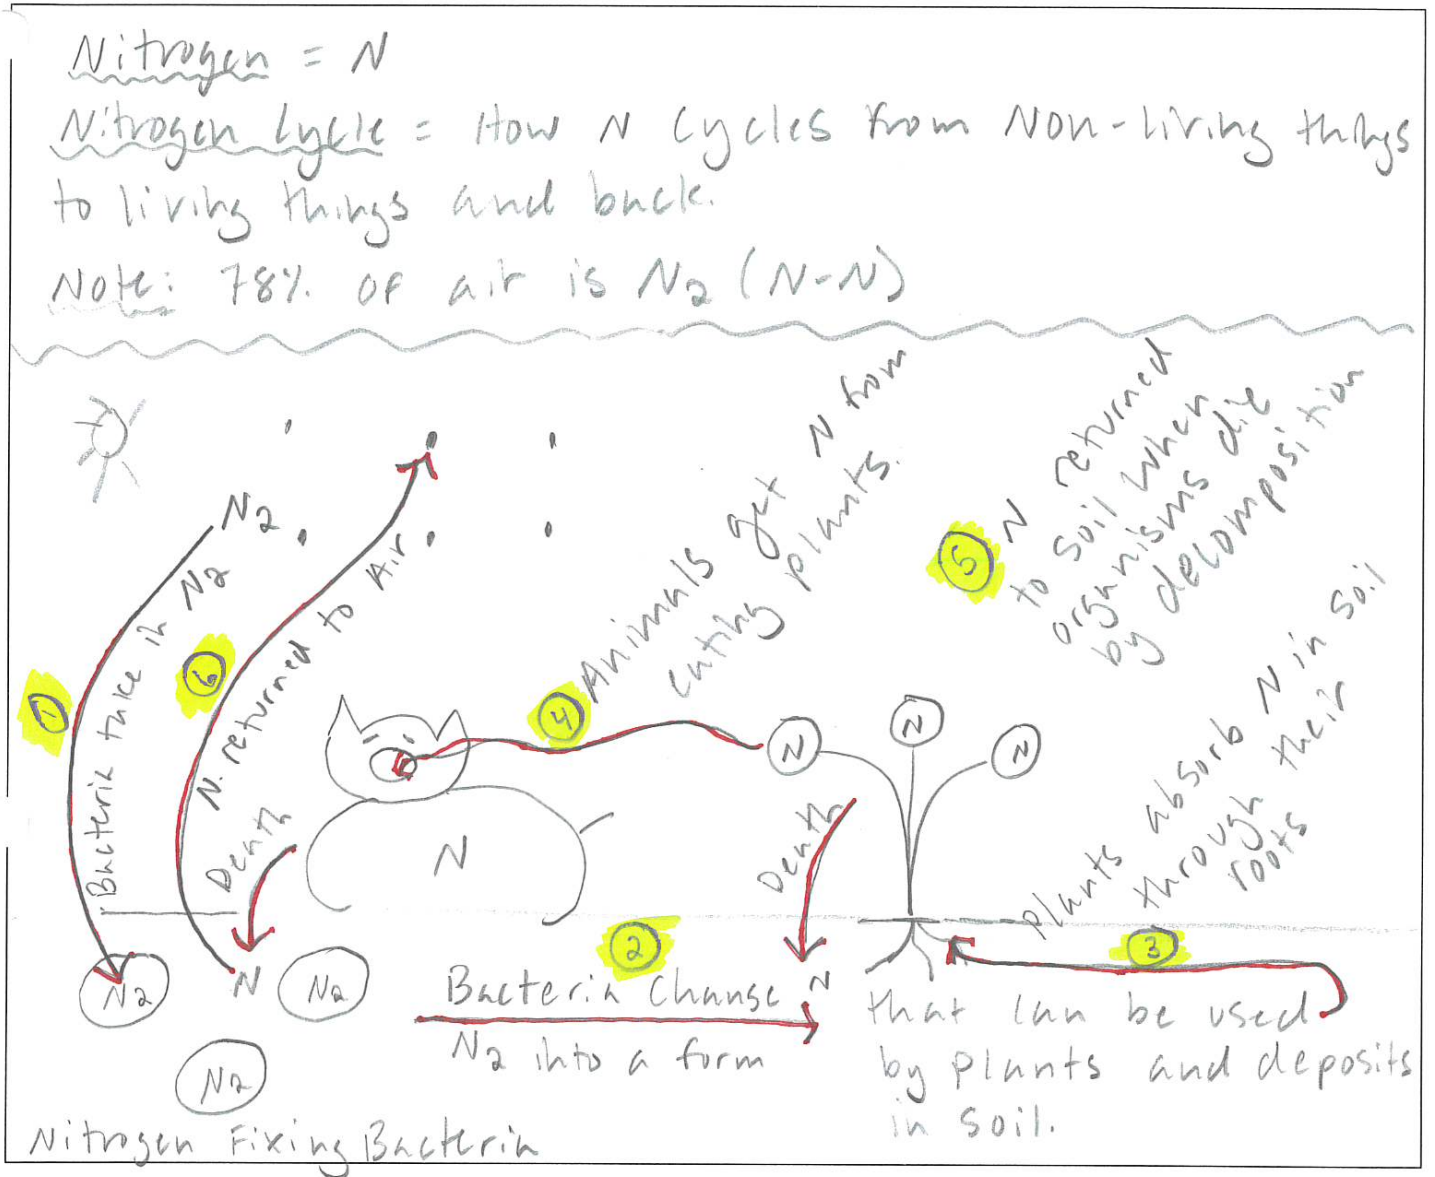 Nitrogen = N
Nitrogen Cycle = How N Cycles from Non-living things
to living things and back.
Note: 78% of air is N2 (N-N)
N2
1
Bacteria take in N2
6
N. returned to Air
Death
4
Animals get N from
eating plants.
5
N returned
to soil when
organisms die
by decomposition
N
N
N
N
Death
3
Plants absorb N in soil
through their
roots
N2
N
N2
N2
2
Bacteria Change
N2 into a form
N
that can be used
by plants and deposits
in soil.
Nitrogen Fixing Bacteria